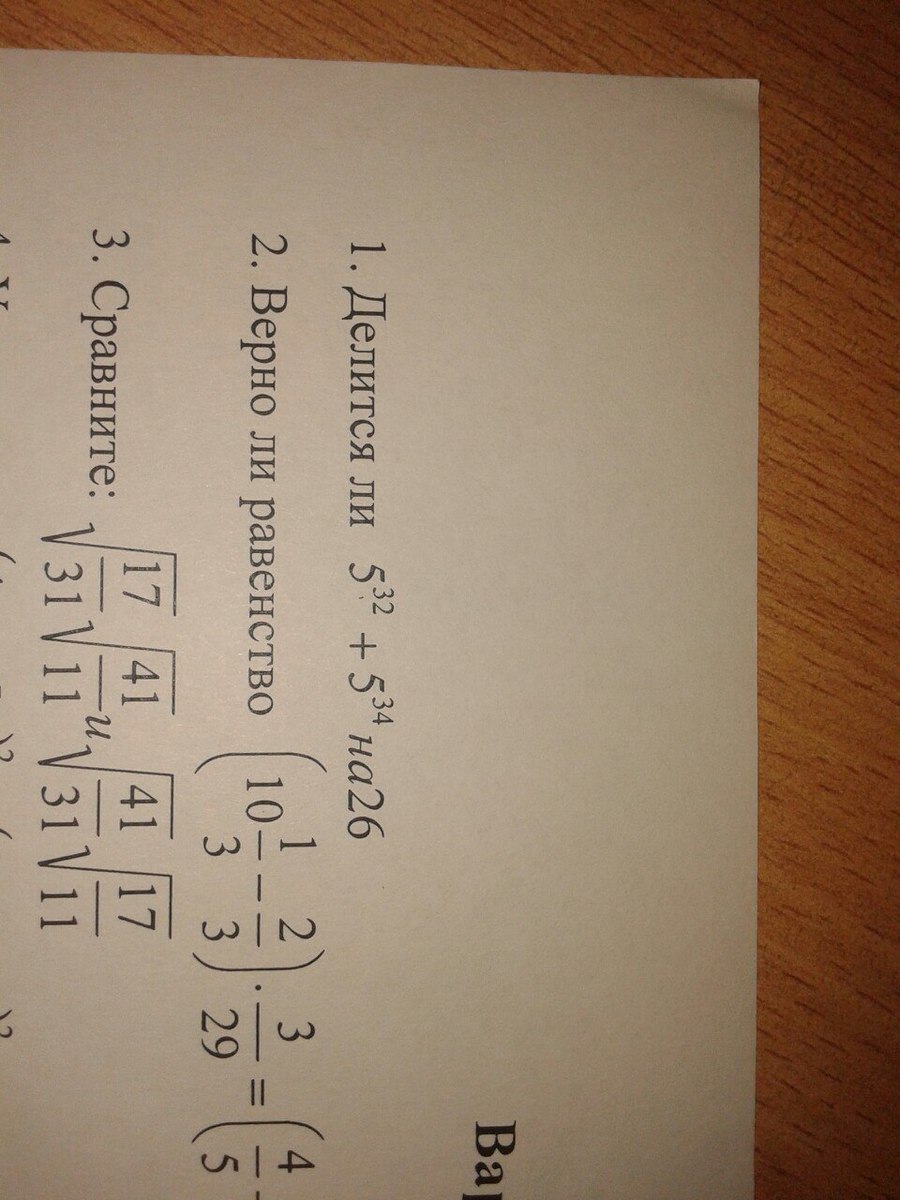 Вар
1. Делится ли 5³² + 5³⁴ на 26
2. Верно ли равенство (10 1/3 − 2/3) · 3/29 = (4/5 −
3. Сравните: √(17/31) √(41/11) и √(41/31) √(17/11)